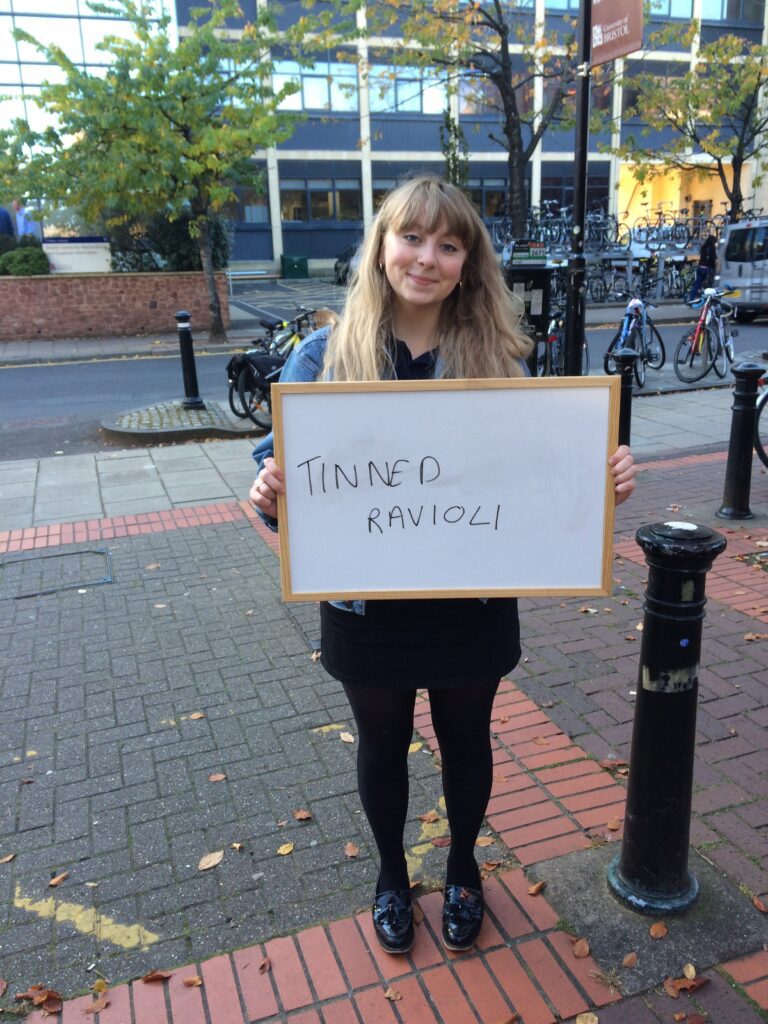 University of
BRISTOL
TINNED
RAVIOLI